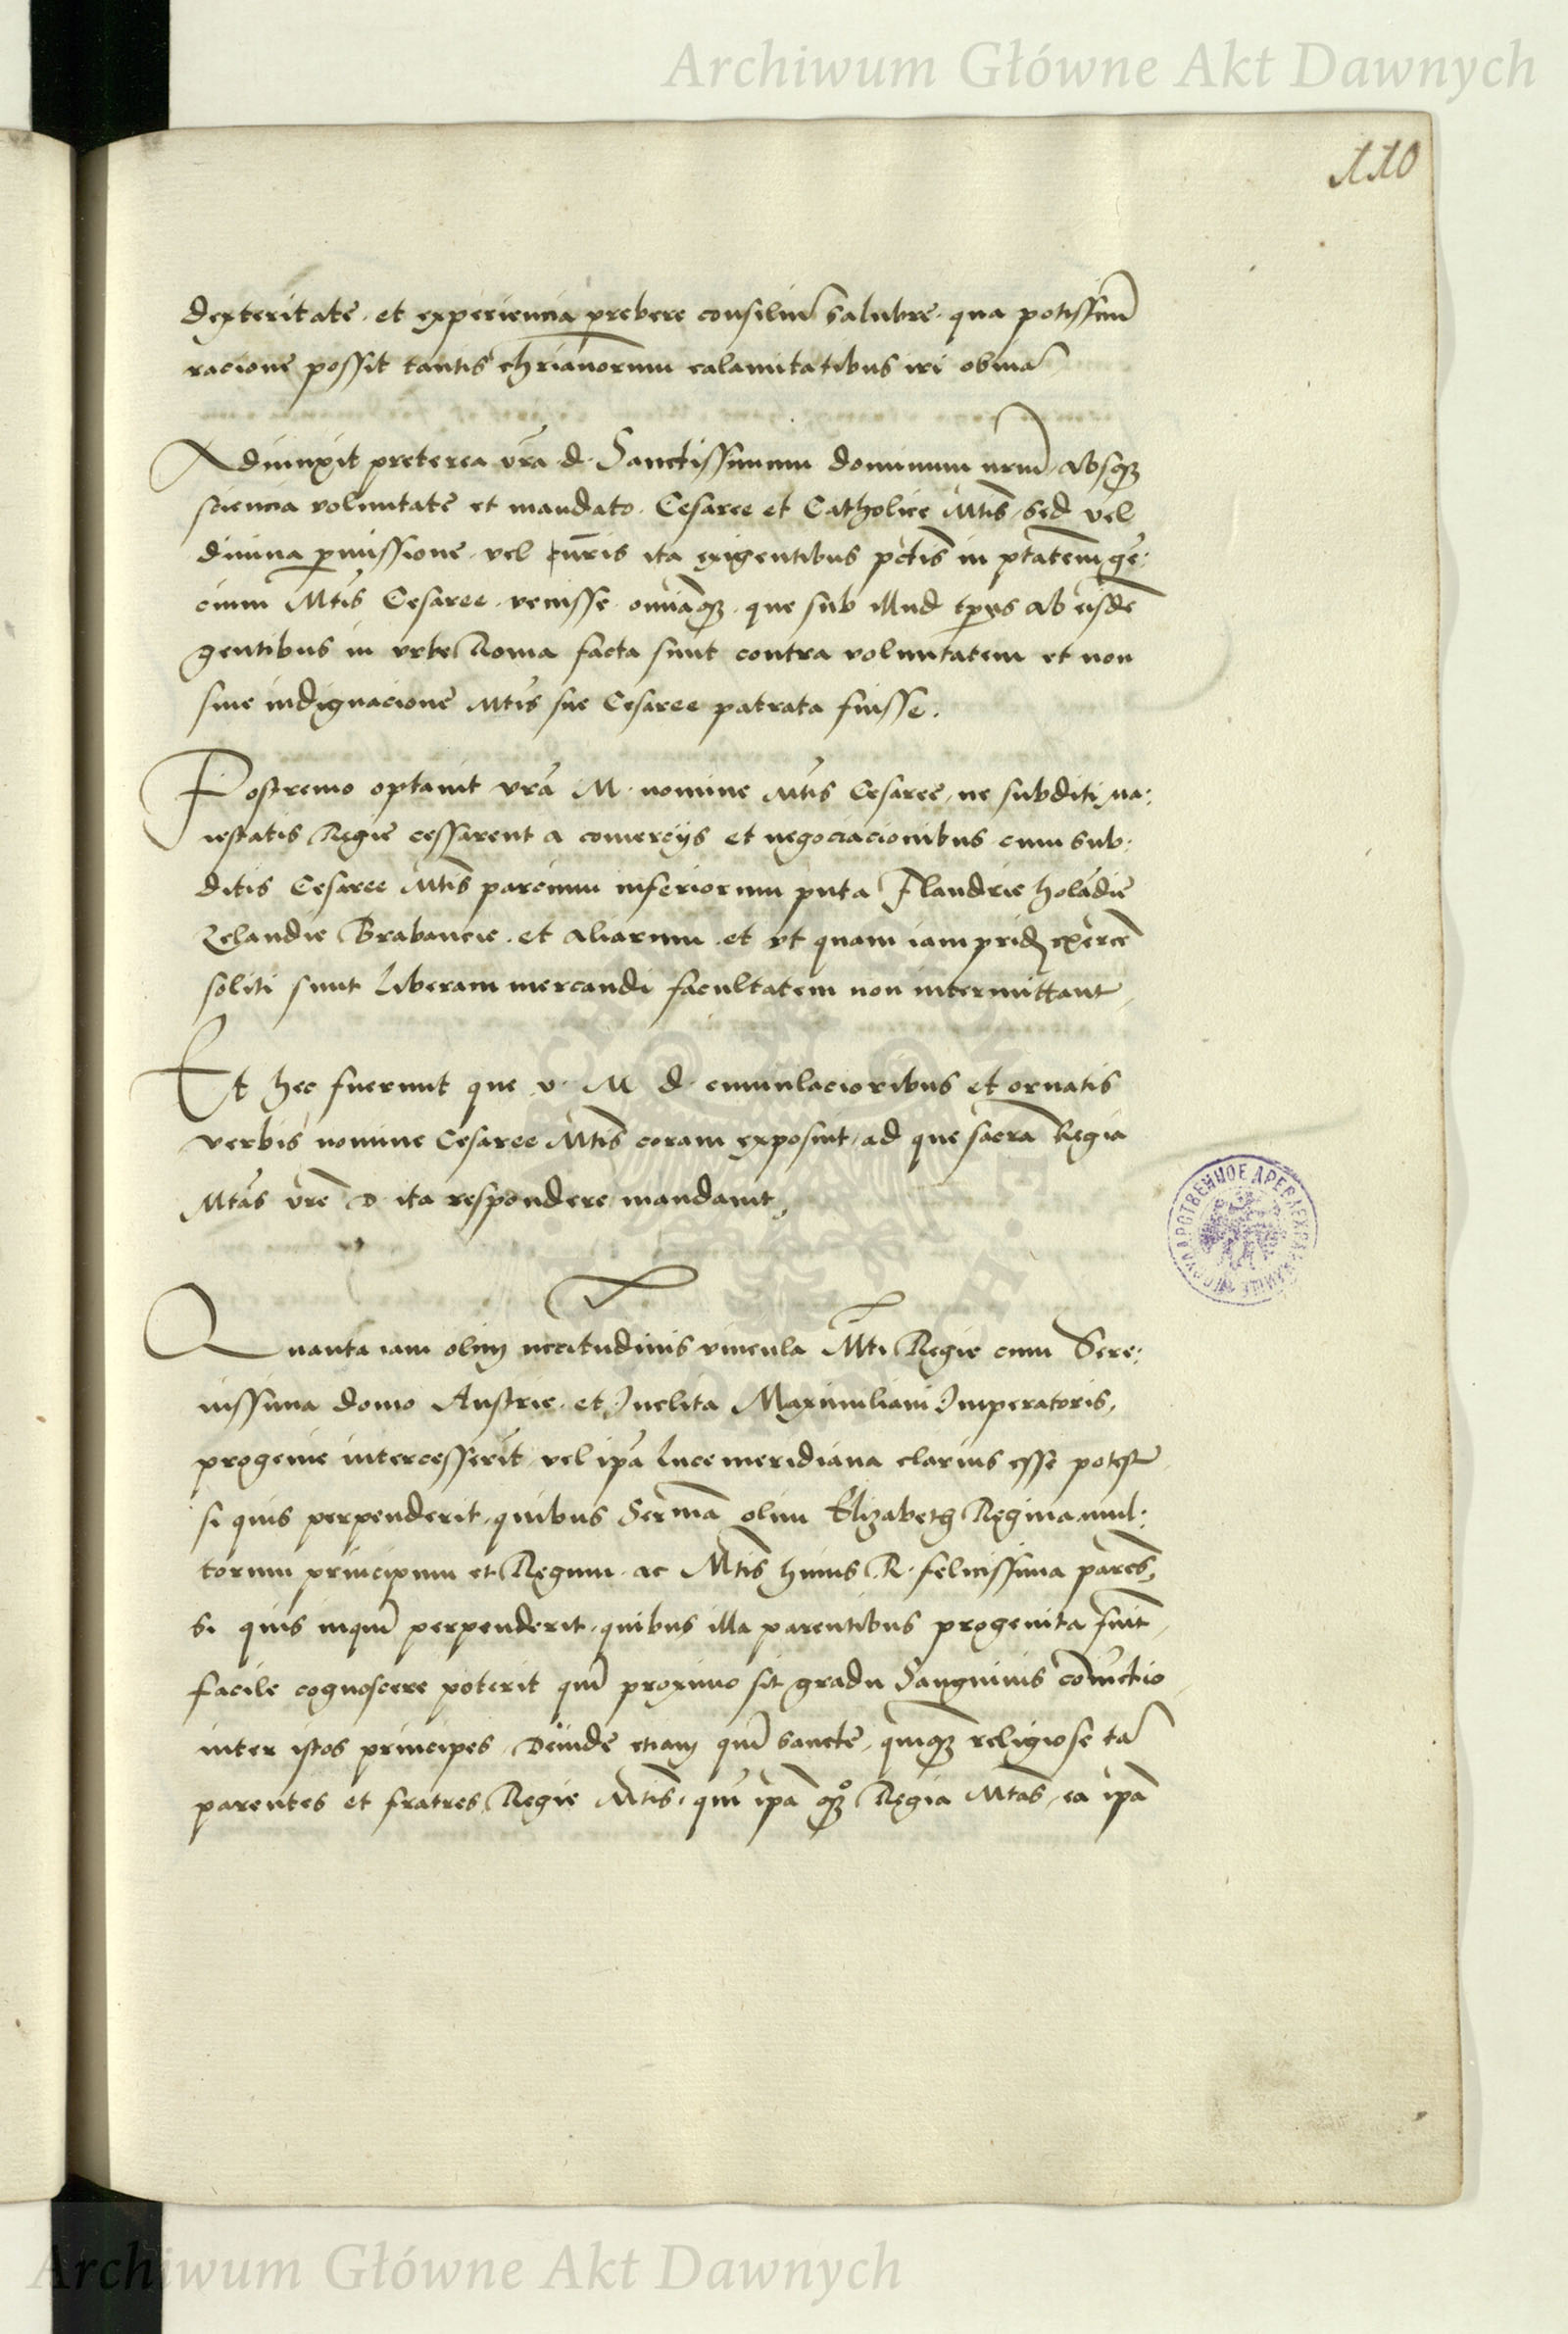 Archiwum Główne Akt Dawnych
110
dexteritate et experiencia prebere consiliū salubre qua potissimū
racione possit tantis chrianorum calamitatibus iri obviā
Adiunxit preterea vrā d. Sanctissimum dominum nrm̄ absqȝ
sciencia voluntate et mandato Cesaree et Catholice Mtis̄ sed vel
divina pmissione vel ita exigentibus pctis̄ in ptatem̄ ge:
cium Mtis̄ Cesaree venisse omniaqȝ que sub illud tps ab eisdē
gentibus in urbe Roma facta sunt contra voluntatem et non
sine indignacione Mtis̄ sue Cesaree patrata fuisse.
Postremo optavit vrā M. nomine Mtis̄ Cesaree, ne subditi ma:
iestatis Regie cessarent a comercijs et negociacionibus cum sub:
ditis Cesaree Mtis̄ parcium inferiorum puta Flandrie holādie
Zelandie Brabancie et aliarum et ut quam iam prid exercē
soliti sunt liberam mercandi facultatem non intermittant
Et hec fuerunt que v. M d. cumulacioribus et ornatis
verbis nomine Cesaree Mtis̄ coram exposuit, ad que sacra Regia
Mtas̄ vrē D ita respondere mandavit,
Quanta iam olim nccitudinis vincula Mti Regie cum Sere:
nissima domo Austrie et Inclita Maximiliani Imperatoris,
progenie intercesserīt vel ipā luce meridiana clarius esse potest
si quis perpenderit, quibus Sermā olim Elizabeth Regina mul:
torum principum et Regum ac Mtis̄ huius R. felicissima parēs,
si quis inquā perpenderit, quibus illa parentibus progenita fuit,
facile cognoscere poterit quā proximo sit gradu Sanguinis coniūctio
inter istos principes, Deinde etiam quā sancte, quāqȝ religiose tā
parentes et fratres Regie Mtis̄, quā ipā qȝ Regia Mtas̄, ea ipā
Archiwum Główne Akt Dawnych